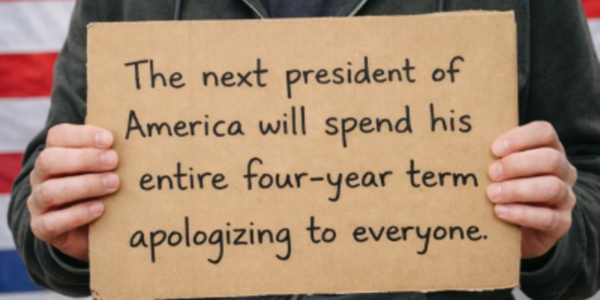 The next president of
America will spend his
entire four-year term
apologizing to everyone.